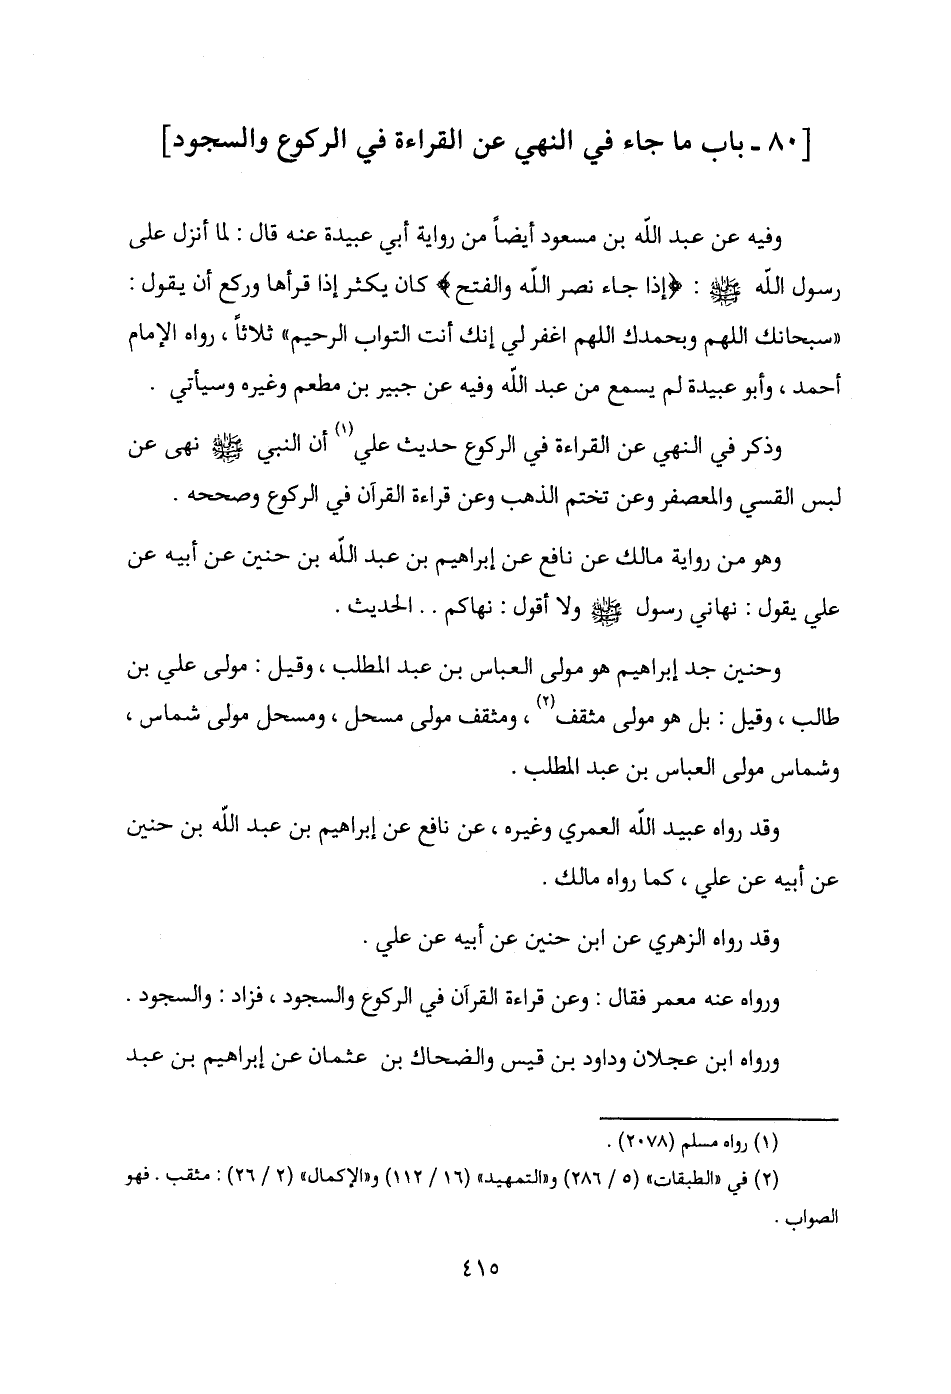 [٨٠ ـ باب ما جاء في النهي عن القراءة في الركوع والسجود]
وفيه عن عبد الله بن مسعود أيضاً من رواية أبي عبيدة عنه قال : لما أنزل على
رسول الله ﷺ : ﴿إذا جاء نصر الله والفتح﴾ كان يكثر إذا قرأها وركع أن يقول :
«سبحانك اللهم وبحمدك اللهم اغفر لي إنك أنت التواب الرحيم» ثلاثاً ، رواه الإمام
أحمد ، وأبو عبيدة لم يسمع من عبد الله وفيه عن جبير بن مطعم وغيره وسيأتي .
وذكر في النهي عن القراءة في الركوع حديث علي(١) أن النبي ﷺ نهى عن
لبس القسي والمعصفر وعن تختم الذهب وعن قراءة القرآن في الركوع وصححه .
وهو من رواية مالك عن نافع عن إبراهيم بن عبد الله بن حنين عن أبيه عن
علي يقول : نهاني رسول ﷺ ولا أقول : نهاكم . . الحديث .
وحنين جد إبراهيم هو مولى العباس بن عبد المطلب ، وقيل : مولى علي بن
طالب ، وقيل : بل هو مولى مثقف(٢) ، ومثقف مولى مسحل ، ومسحل مولى شماس ،
وشماس مولى العباس بن عبد المطلب .
وقد رواه عبيد الله العمري وغيره ، عن نافع عن إبراهيم بن عبد الله بن حنين
عن أبيه عن علي ، كما رواه مالك .
وقد رواه الزهري عن ابن حنين عن أبيه عن علي .
ورواه عنه معمر فقال : وعن قراءة القرآن في الركوع والسجود ، فزاد : والسجود .
ورواه ابن عجلان وداود بن قيس والضحاك بن عثمان عن إبراهيم بن عبد
(١) رواه مسلم (٢٠٧٨) .
(٢) في «الطبقات» (٥ / ٢٨٦) و«التمهيد» (١٦ / ١١٢) و«الإكمال» (٢ / ٢٦) : مثقب . فهو
الصواب .
٤١٥